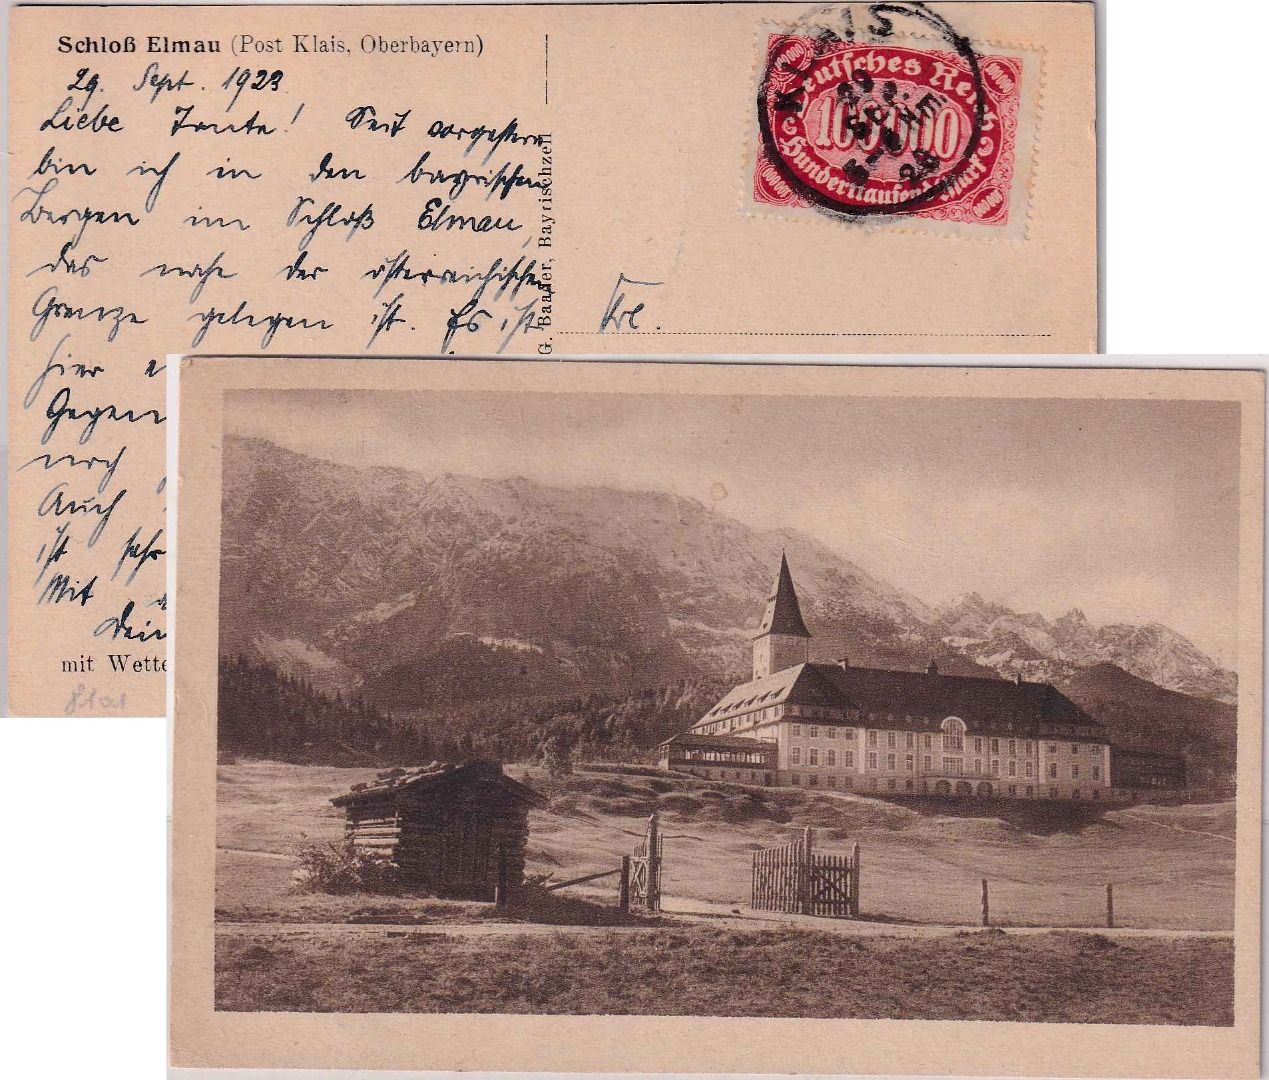 Schloß Elmau (Post Klais, Oberbayern)
29. Sept. 1923
Liebe Tante! Seit vorgestern
bin ich in den bayrischen
Bergen im Schloß Elmau,
das nahe der österreichischen
Grenze gelegen ist. Es ist
hier
Gegen
noch
Auch
ist sehr
Mit
Dein
mit Wette
G. Baader, Bayrischzell
Frl.
KLAIS
Deutsches Reich
100000
Hunderttausend Mark
100000
100000
100000
100000